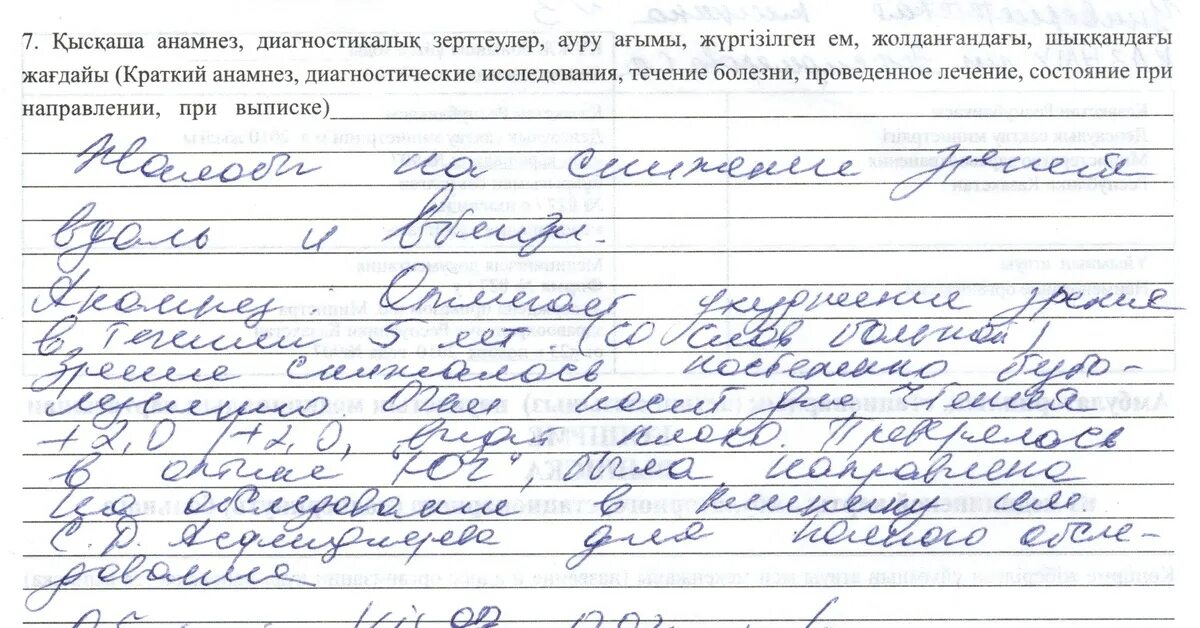 7. Қысқаша анамнез, диагностикалық зерттеулер, ауру ағымы, жүргізілген ем, жолданғандағы, шыққандағы
жағдайы (Краткий анамнез, диагностические исследования, течение болезни, проведенное лечение, состояние при
направлении, при выписке)
Жалобы на снижение зрения
вдаль и вблизи.
Анамнез. Отмечает ухудшение зрения
в течении 5 лет (со слов больной)
зрение снижалось постепенно
носит для чтения
+2,0 /+2,0, видит плохо. Проверялось
в оптике "Юг", была направлена
на обследование в клинику им
С.Д. Асфендиярова для полного обсле-
дования